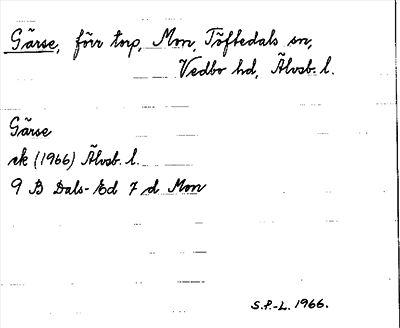 Gärse, förr torp, Mon, Töftedals sn,
Vedbo hd, Älvsb. l.
Gärse
ek (1966) Älvsb. l.
9 B Dals-Ed 7 d Mon
S.P.-L. 1966.